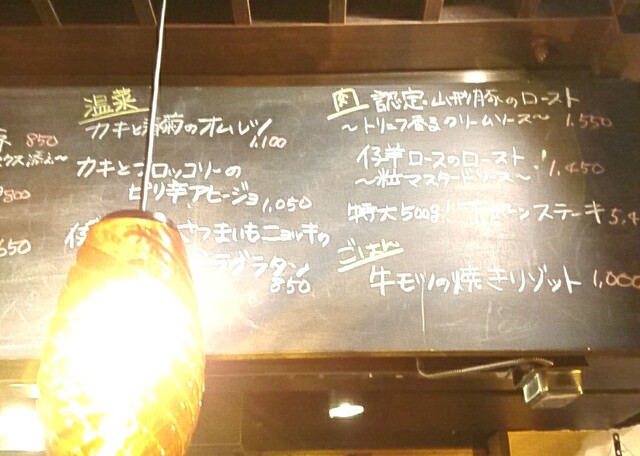 850
クス添え〜
800
650
温菜
カキとのオムレツ
1,100
カキとブロッコリーの
ピリ辛アヒージョ 1,050
さつまいもニョッキの
グラタン
850
肉 認定・山形豚のロースト
〜トリュフ香るクリームソース〜 1,550
仔羊ロースのロースト
〜粒マスタードソース〜 1,450
特大500g! ステーキ 5,4
ごはん
牛モツの焼きリゾット 1,000